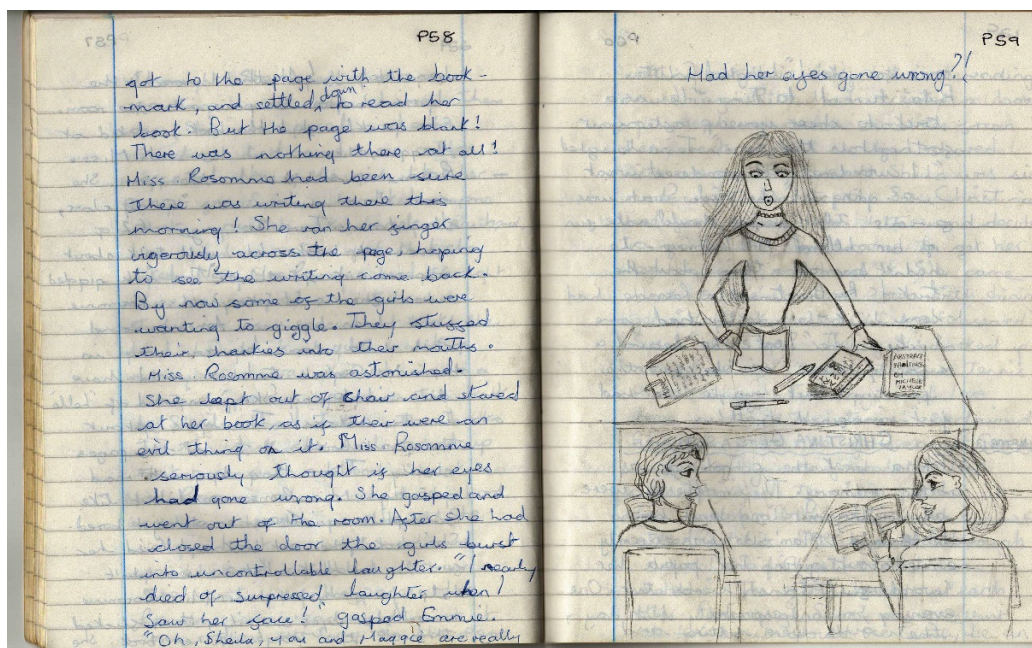 P58
got to the page with the book-
mark, and settled down to read her
book. But the page was blank!
There was nothing there at all!
Miss Rosomme had been sure
there was writing there this
morning! She ran her finger
vigerously across the page, hoping
to see the writing come back.
By now some of the girls were
wanting to giggle. They stuffed
their hankies into their mouths.
Miss Rosomme was astonished.
She lept out of chair and stared
at her book, as if their were an
evil thing on it. Miss Rosomme
seriously thought if her eyes
had gone wrong. She gasped and
went out of the room. After she had
closed the door the girls burst
into uncontrollable laughter. "I nearly
died of surpressed laughter when I
saw her face!" gasped Emmie.
"Oh, Sheila, you and Maggie are really
P59
Had her eyes gone wrong?!
ABSTRACT
PAINTING
BY
MICHELE
TAYLOR